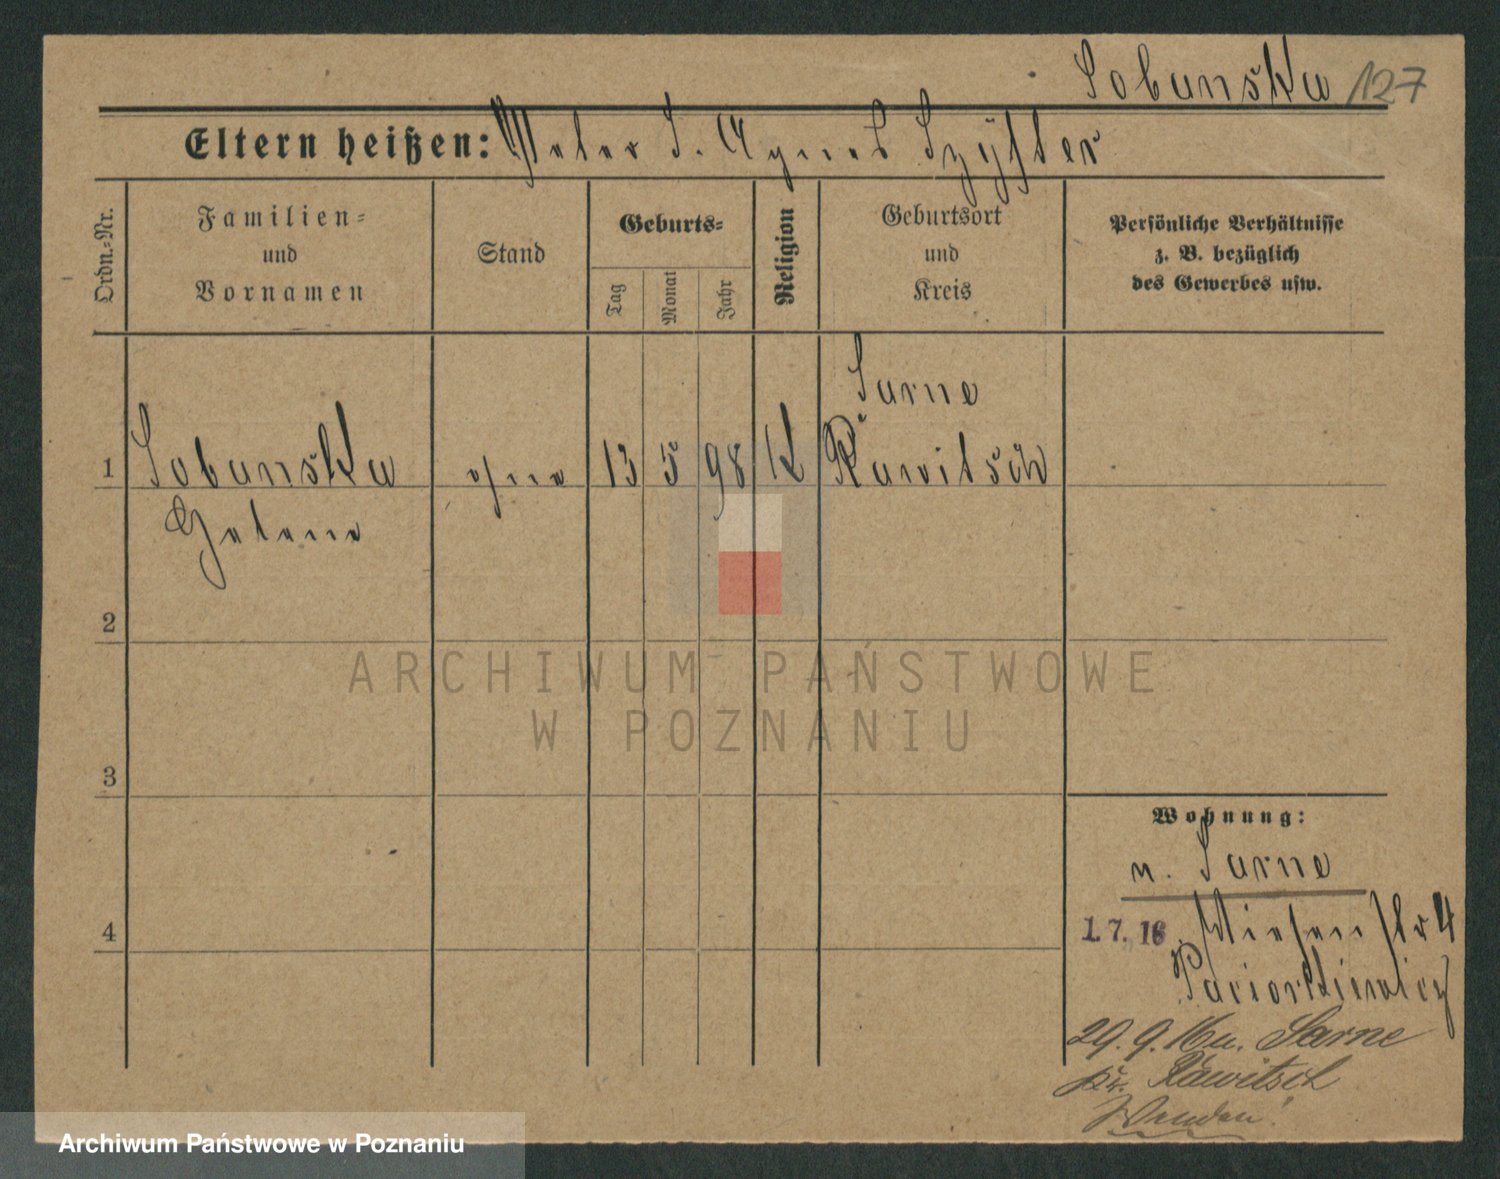 Sobanska 127
Eltern heißen: Peter u. Agnes
Ordn.-Nr.
Familien-
und
Vornamen
Stand
Geburts-
Tag
Monat
Jahr
Religion
Geburtsort
und
Kreis
Persönliche Verhältnisse
z. B. bezüglich
des Gewerbes usw.
Sarne
1 Sobanska ohne 13 5 98 K Rawitsch
Helene
2
ARCHIWUM PAŃSTWOWE
W POZNANIU
3
Wohnung:
n. Sarne
4
1.7.16 Wiesenstr 4
Paciorkiewicz
29.9.16 n. Sarne
Kr. Rawitsch
Wenden!
Archiwum Państwowe w Poznaniu